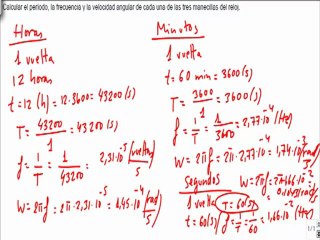 Calcular el periodo, la frecuencia y la velocidad angular de cada una de las tres manecillas del reloj.
Horas
1 vuelta
12 horas
t = 12 (h) = 12·3600 = 43200 (s)
T = 43200/1 = 43200 (s)
f = 1/T = 1/43200 = 2,31·10⁻⁵ (vueltas/s)
W = 2πf = 2π·2,31·10⁻⁵ = 1,45·10⁻⁴ (rad/s)
Minutos
1 vuelta
t = 60 min = 3600 (s)
T = 3600/1 = 3600 (s)
f = 1/T = 1/3600 = 2,77·10⁻⁴ (Hz)
W = 2πf = 2π·2,77·10⁻⁴ = 1,74·10⁻³ (rad/s)
Segundos
1 vuelta
t = 60 (s)
T = 60 (s)
f = 1/T = 1/60 = 1,66·10⁻² (Hz)
W = 2πf = 2π·1,66·10⁻²